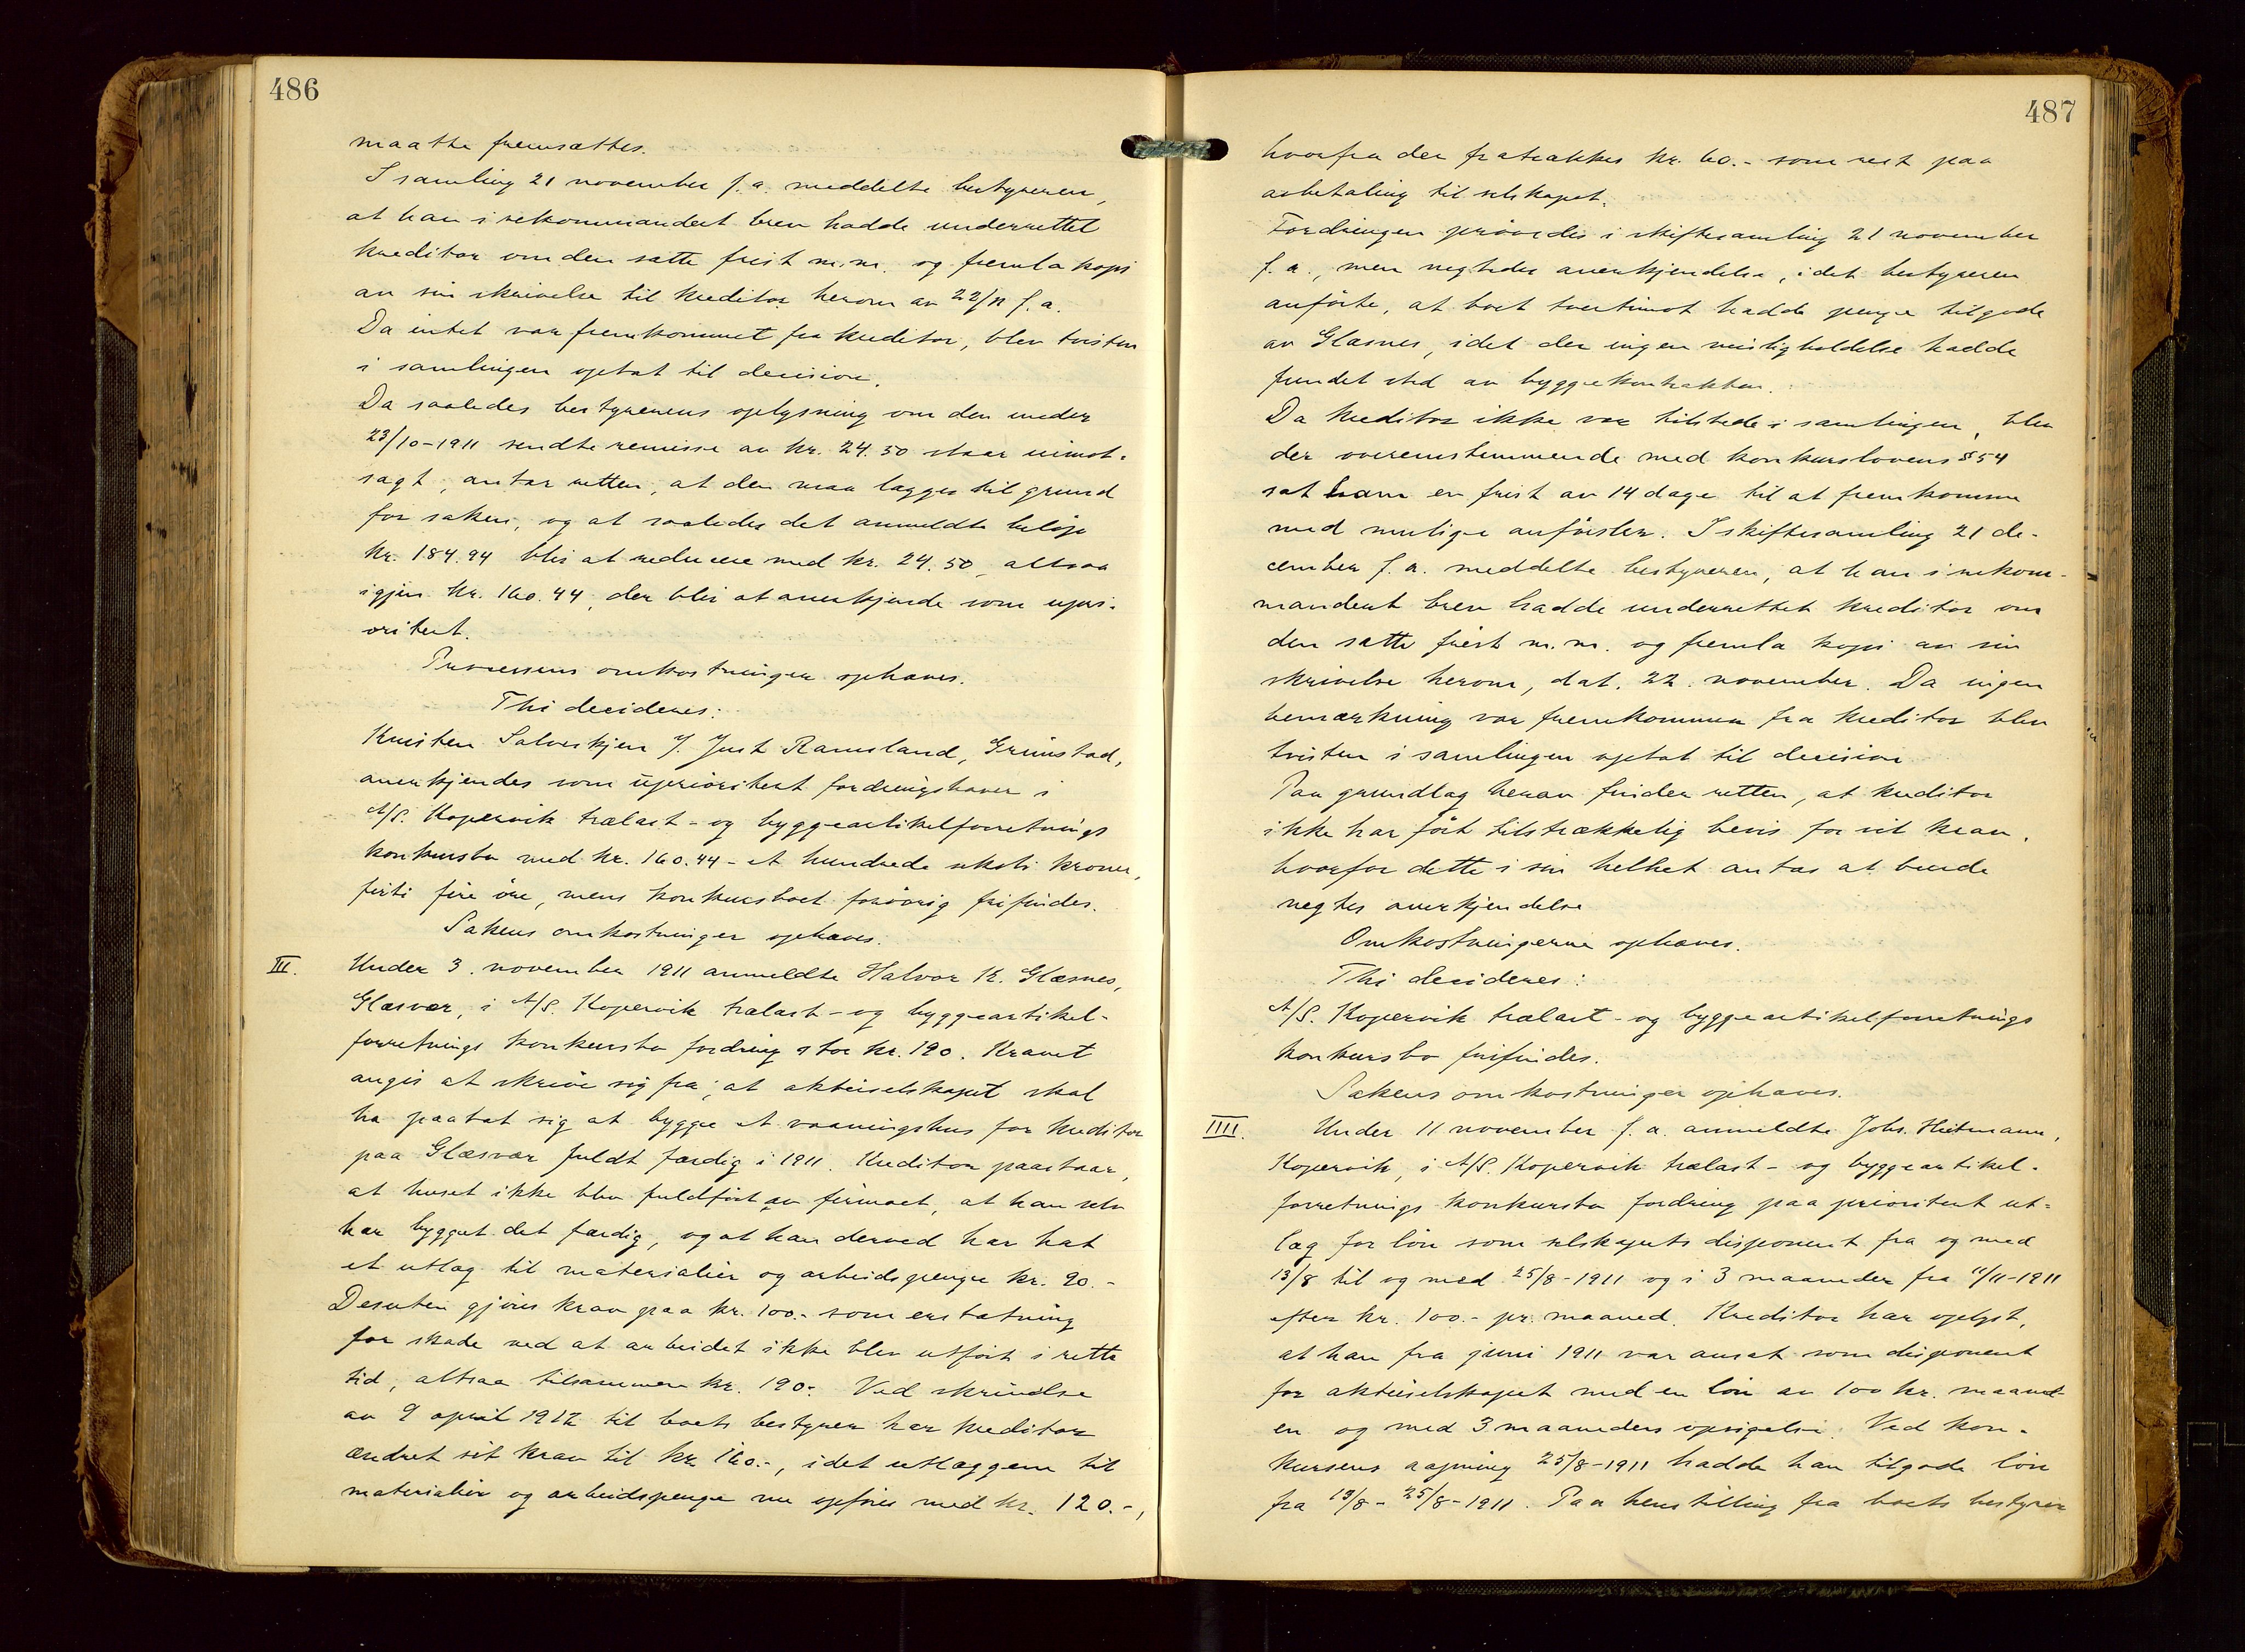 486
maatte fremsættes.
I samling 21 november f. a. meddelte bestyreren,
at han i rekommandert brev hadde underrettet
kreditor om den satte frist m.m. og fremla kopi
av sin skrivelse til kreditor herom av 22/11 f. a.
Da intet var fremkommet fra kreditor, blev tvisten
i samlingen optat til decision.
Da saaledes bestyrerens oplysning om den under
23/10-1911 sendte remisse av kr. 24.50 staar uimot-
sagt, antar retten, at den maa lægges til grund
for saken, og at saaledes det anmeldte beløp
kr. 184.94 blir at reducere med kr. 24.50, altsaa
igjen kr. 160.44, der blir at anerkjende som upri-
oritert.
Processens omkostninger ophæves.
Thi decideres:
Kristen Salveskjen f. Just Ramsland, Grimstad,
anerkjendes som uprioritert fordringshaver i
A/S. Kopervik trælast- og byggeartikelforretnings
konkursbo med kr. 160.44 - et hundrede seksti kroner,
firti fire øre, mens konkursboet forøvrig frifindes.
Sakens omkostninger ophæves.
III. Under 3. november 1911 anmeldte Halvor K. Glæsnes,
Glæsvær, i A/S. Kopervik trælast- og byggeartikel-
forretnings konkursbo fordring stor kr. 190. Kravet
angis at skrive sig fra, at aktieselskapet skal
ha paatat sig at bygge et vaaningshus for kreditor
paa Glæsvær fuldt færdig i 1911. Kreditor paastaar,
at huset ikke blev fuldført av firmaet, at han selv
har bygget det færdig, og at han derved har hat
et utlæg til materialier og arbeidspenge kr. 90.-
Desuten gjøres krav paa kr. 100.- som erstatning
for skade ved at arbeidet ikke blev utført i rette
tid, altsaa tilsammen kr. 190.- Ved skrivelse
av 9 april 1912 til boets bestyrer har kreditor
ændret sit krav til kr. 160.-, idet utlæggene til
materialier og arbeidspenge nu opføres med kr. 120.-,
487
hvorfra der fratrækkes kr. 60.- som rest paa
avbetaling til selskapet.
Fordringen prøvedes i skiftesamling 21 november
f. a., men negtedes anerkjendelse, idet bestyreren
anførte, at boet tvertimot hadde penge tilgode
av Glæsnes, idet der ingen misligholdelse hadde
fundet sted av byggekontrakten.
Da kreditor ikke var tilstede i samlingen, blev
der overensstemmende med konkurslovens § 54
sat ham en frist av 14 dage til at fremkomme
med mulige anførsler. I skiftesamling 21 de-
cember f. a. meddelte bestyreren, at han i rekom-
mandert brev hadde underrettet kreditor om
den satte frist m.m. og fremla kopi av sin
skrivelse herom, dat. 22. november. Da ingen
bemærkning var fremkommen fra kreditor blev
tvisten i samlingen optat til decision
Paa grundlag herav finder retten, at kreditor
ikke har ført tilstrækkelig bevis for sit krav,
hvorfor dette i sin helhet antas at burde
negtes anerkjendelse
Omkostningerne ophæves.
Thi decideres:
A/S. Kopervik trælast- og byggeartikelforretnings
konkursbo frifindes.
Sakens omkostninger ophæves.
IIII. Under 11 november f. a. anmeldte Johs. Hietmann,
Kopervik, i A/S. Kopervik trælast- og byggeartikel-
forretnings konkursbo fordring paa prioritert ut-
læg for løn som selskapets disponent fra og med
13/8 til og med 25/8-1911 og i 3 maaneder fra 11/11-1911
efter kr. 100.- pr. maaned. Kreditor har oplyst,
at han fra juni 1911 var ansat som disponent
for aktieselskapet med en løn av 100 kr. maaned-
en og med 3 maaneders opsigelse. Ved kon-
kursens aapning 25/8-1911 hadde han tilgode løn
fra 13/8 - 25/8-1911. Paa henstilling fra boets bestyrer